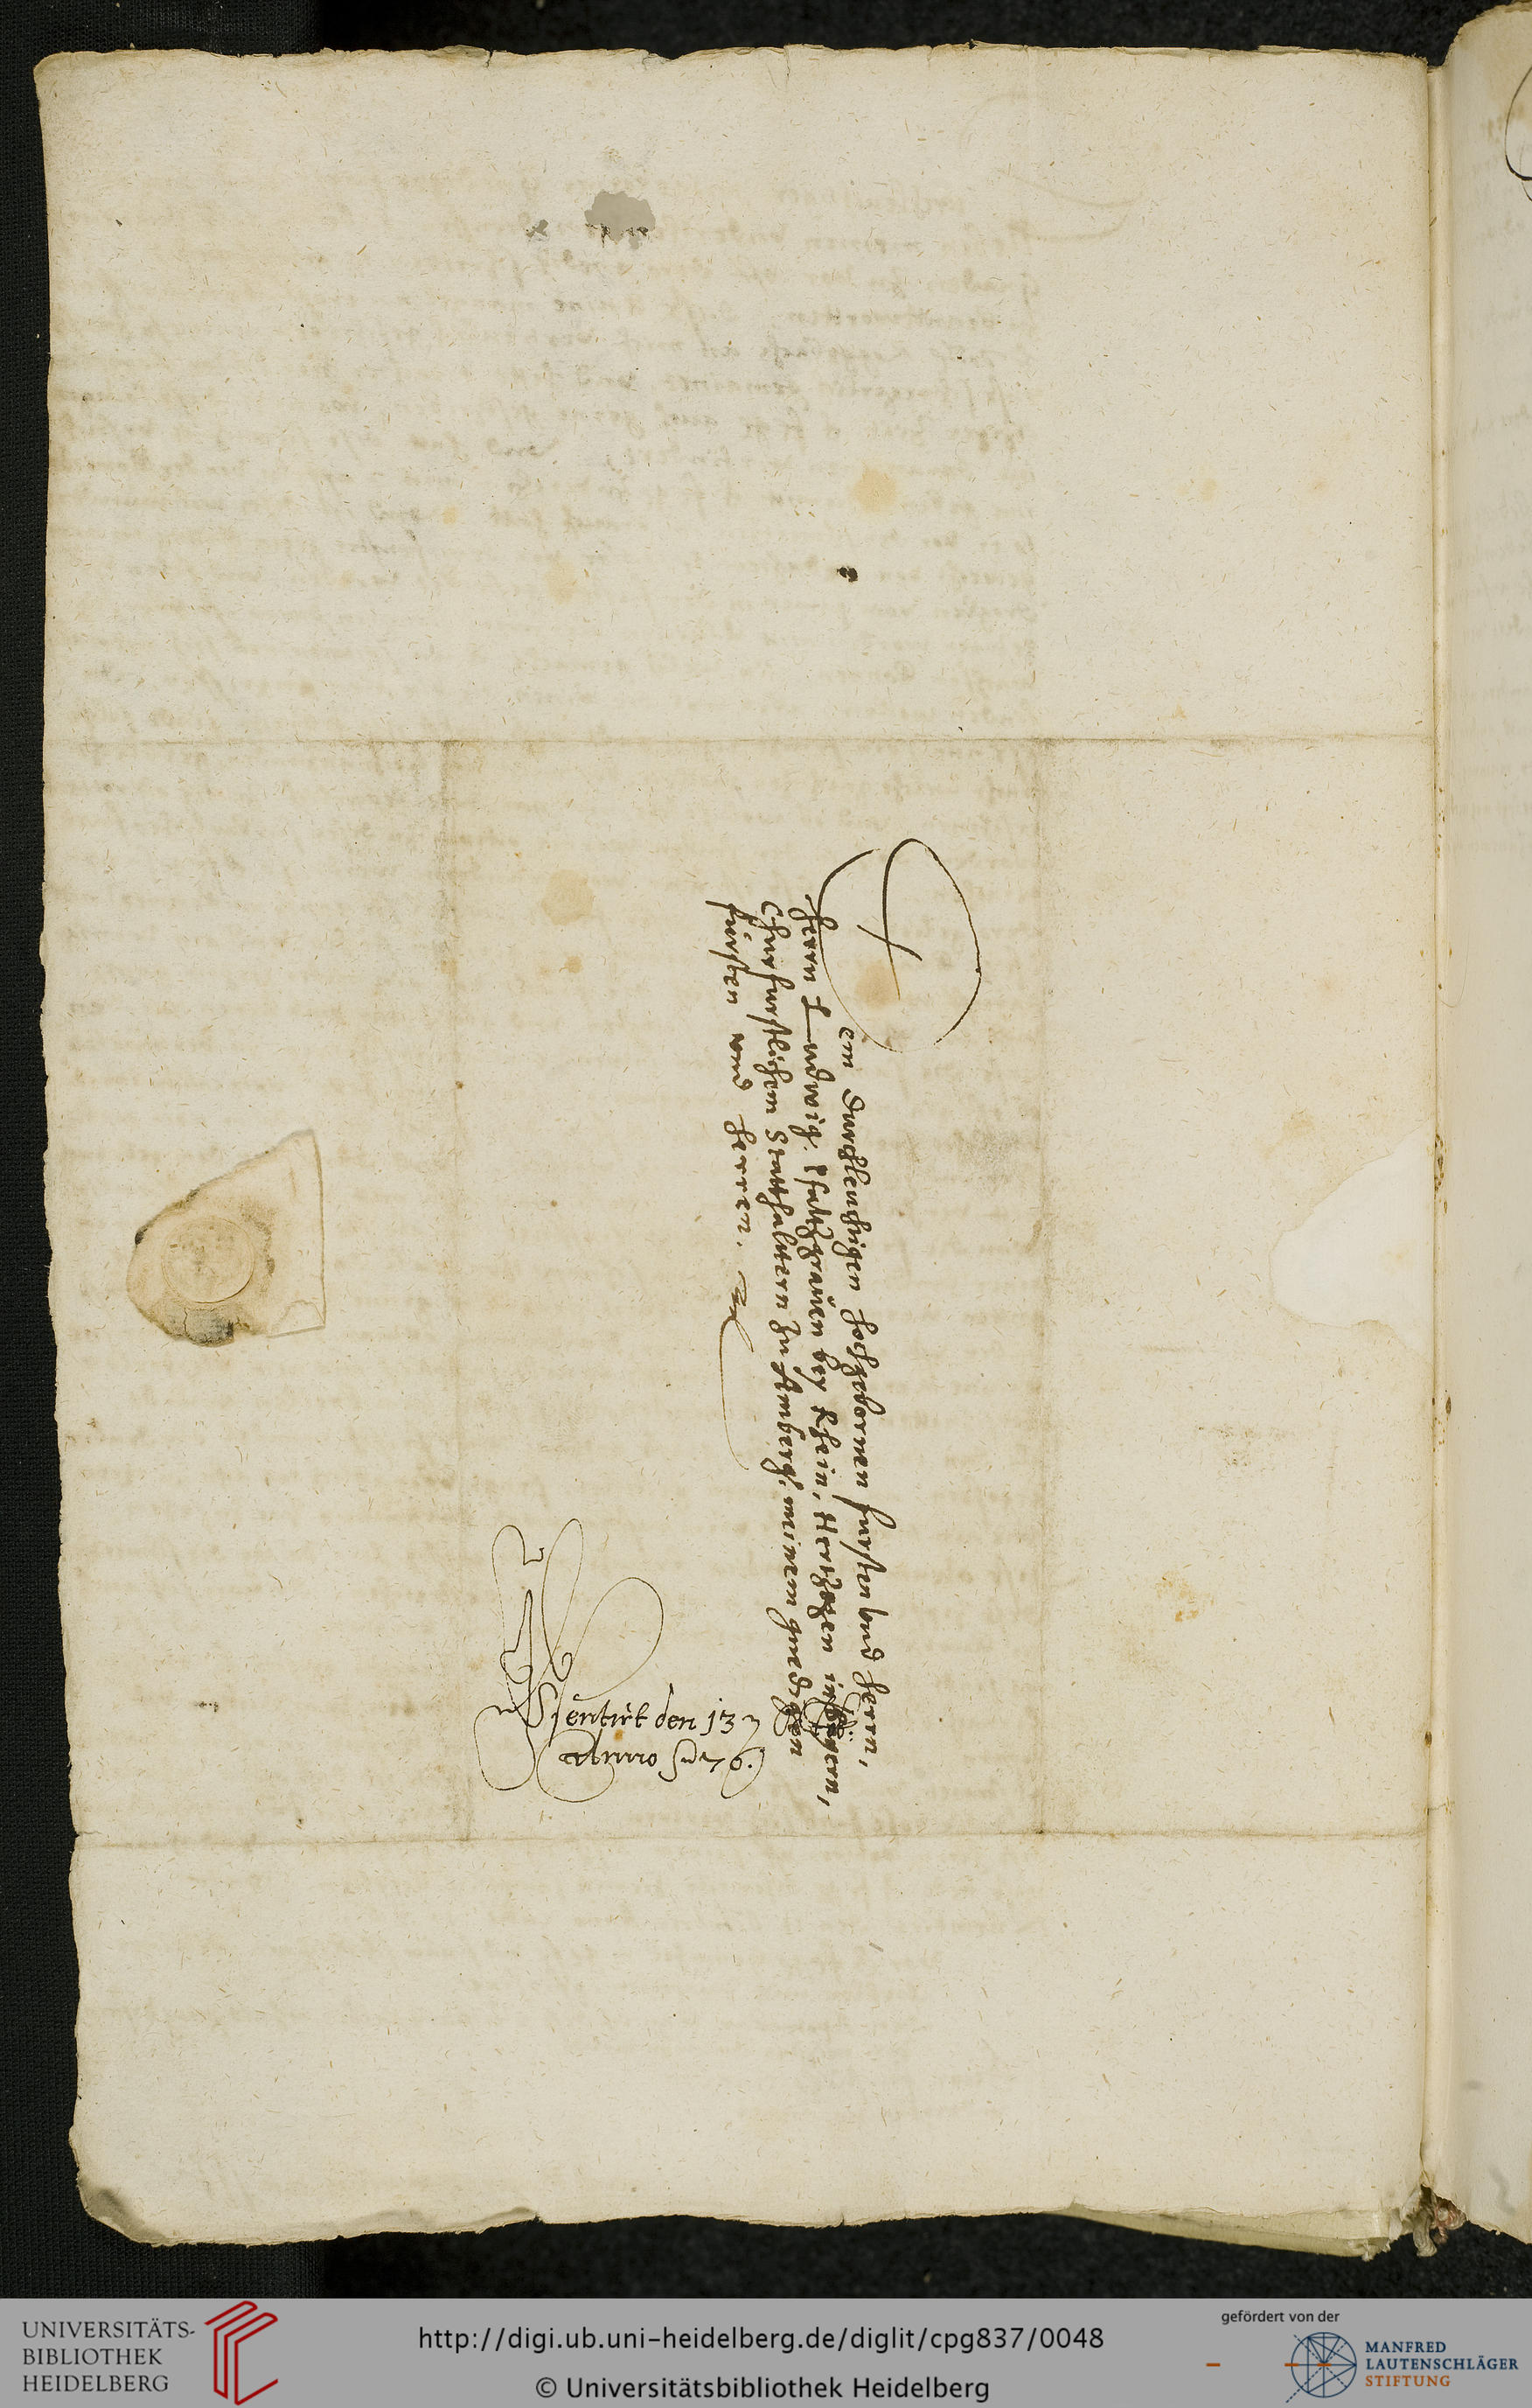 Dem Durchleuchtigen Hochgebornen fursten vnd Herrn,
Herrn Ludwig Pfaltzgrauen bey Rhein, Hertzogen in Bayern,
Churfurstlichem Statthaltern zu Amberg, meinem gnedigen
fürsten vnnd Herren.
sentirt den 13
Anno 76.
UNIVERSITÄTS-
BIBLIOTHEK
HEIDELBERG
http://digi.ub.uni-heidelberg.de/diglit/cpg837/0048
© Universitätsbibliothek Heidelberg
gefördert von der
MANFRED
LAUTENSCHLÄGER
STIFTUNG